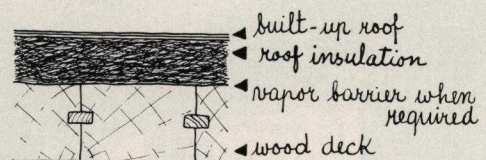 built-up roof
roof insulation
vapor barrier when
required
wood deck